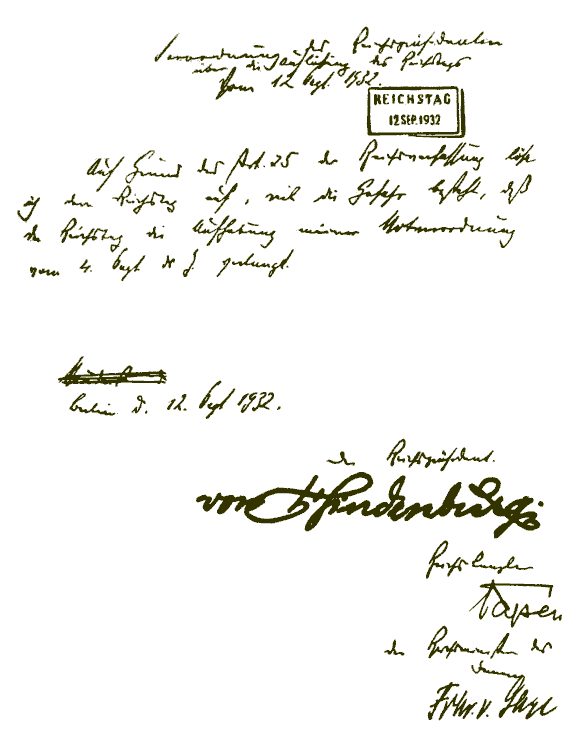 Verordnung des Reichspräsidenten
über die Auflösung des Reichstags
Vom 12 Sept. 1932.
REICHSTAG
12 SEP. 1932
Auf Grund des Art. 25 der Reichsverfassung löse
ich den Reichstag auf, weil die Gefahr besteht, daß
der Reichstag die Aufhebung meiner Notverordnung
vom 4. Sept d. J. verlangt.
Berlin d. 12. Sept 1932.
der Reichspräsident.
von Hindenburg
Reichskanzler
Papen
der Reichsminister des
Innern
Frhr. v. Gayl